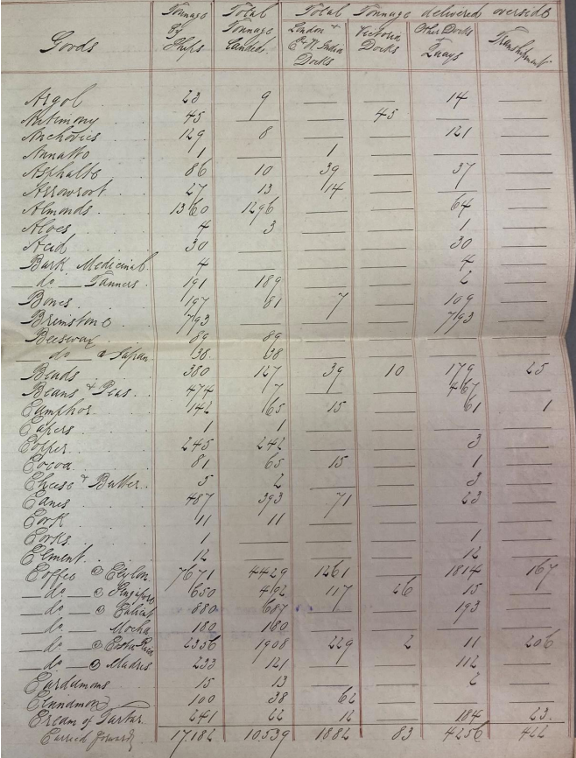 Goods Tonnage by Ships Total Tonnage Landed Total Tonnage delivered overside
London & E & W India Docks Victoria Docks Other Docks Quays Transhipment
Argol 23 9 — — 14 —
Antimony 45 — — 45 — —
Anchovies 129 8 — — 121 —
Annatto 1 — 1 — — —
Asphalte 86 10 39 — 37 —
Arrowroot 27 13 14 — — —
Almonds 1360 1296 — — 64 —
Aloes 4 3 — — 1 —
Acid 30 — — — 30 —
Bark Medicinal 4 — — — 4 —
do — Tanners 191 189 — — 2 —
Bones 197 81 7 — 109 —
Brimstone 793 — — — 793 —
Beeswax 89 89 — — — —
do — Japan 138 138 — — — —
Beads 380 127 39 10 179 25
Beans & Peas 474 7 — — 467 —
Camphor 142 65 15 — 61 1
Capers 1 1 — — — —
Copper 245 242 — — 3 —
Cocoa 81 65 15 — 1 —
Cheese & Butter 5 2 — — 3 —
Canes 487 393 71 — 23 —
Cork 11 11 — — — —
Corks 1 — — — 1 —
Cement 12 — — — 12 —
Coffee Ceylon 7671 4429 1261 — 1814 167
— do — 650 492 117 26 15 —
— do — 880 687 — — 193 —
— do — Mocha 180 180 — — — —
— do — Costa Rica 2356 1908 229 2 11 206
— do — Madras 233 121 — — 112 —
Cardamoms 15 13 — — 2 —
Cinnamon 100 38 62 — — —
Cream of Tartar 241 22 12 — 184 23
Carried forward 17182 10539 1882 83 4256 422